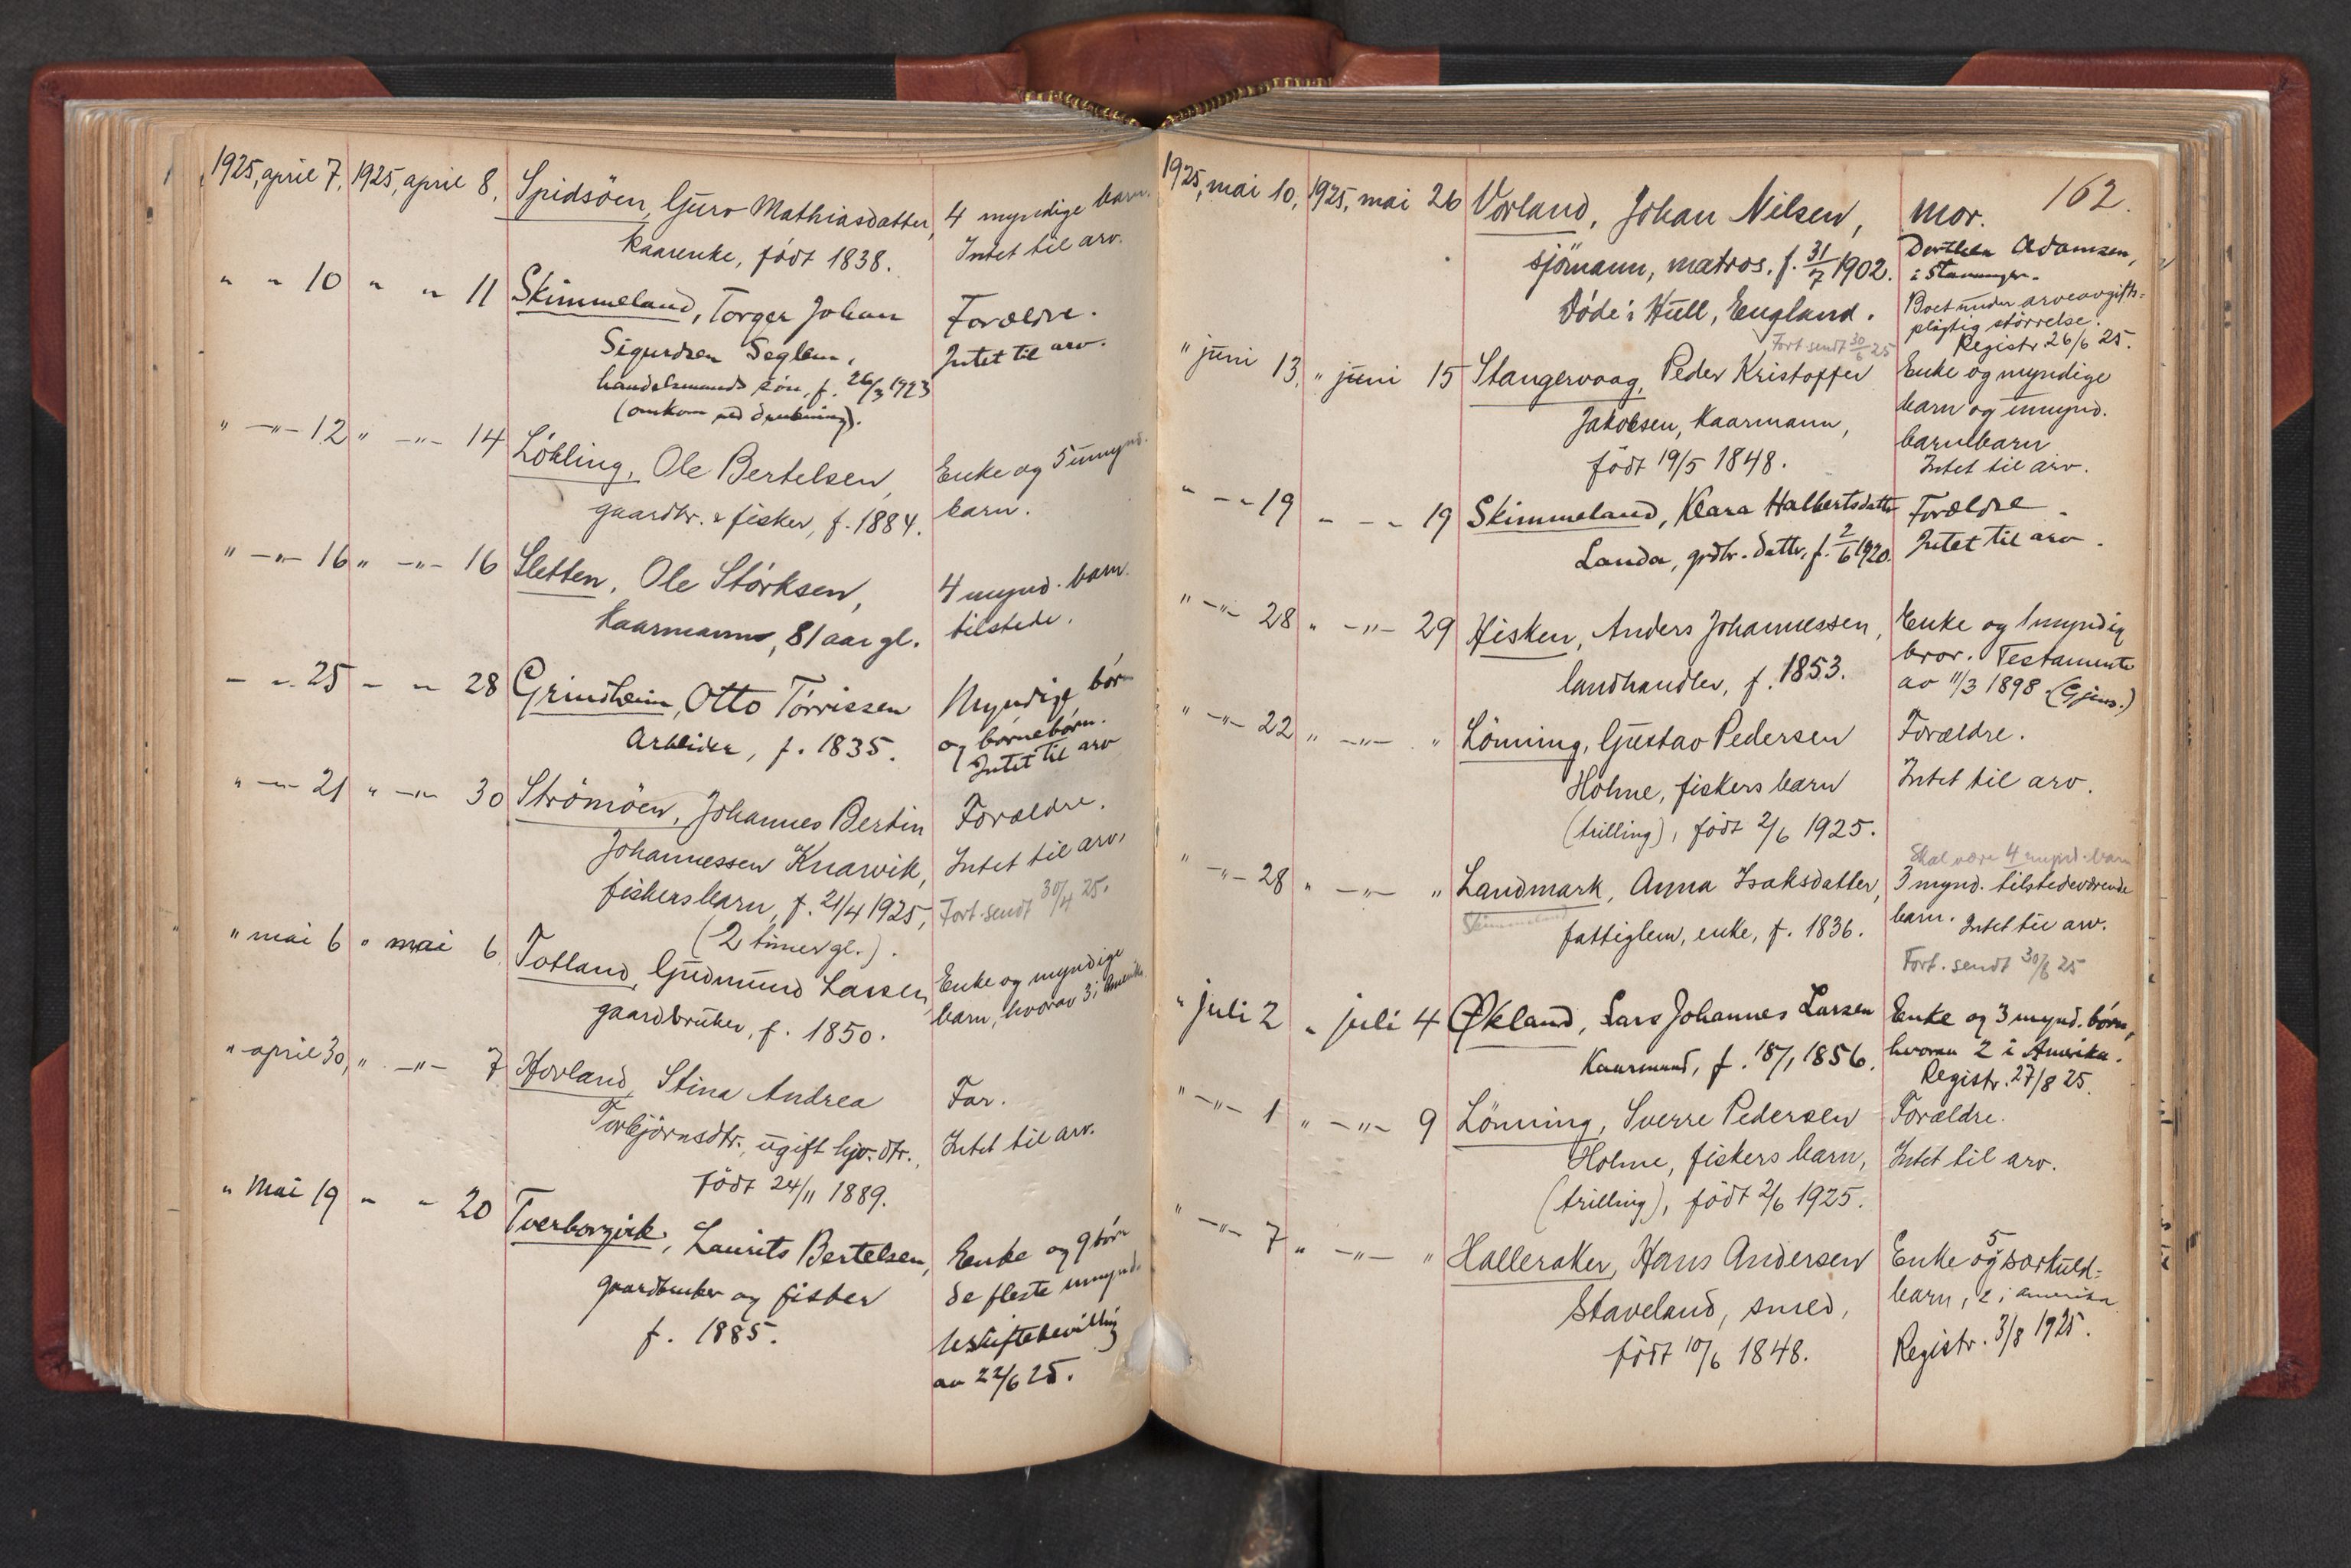 1925, april 7, 1925, april 8, Spidsöen, Guro Mathiasdatter, 4 myndige barn.
kaarenke, født 1838. Intet til arv.
" " 10 " " 11 Skimmeland, Torger Johan Forældre.
Sigurdsen Seglem, Intet til arv.
handelsmands søn, f. 26/3 1923
(omkom ved drukning).
" -"- 12 " -"- 14 Løkling, Ole Bertelsen, Enke og 5 umynd.
gaardbr. & fisker, f. 1884. barn.
" -"- 16 " -"- 16 Sletten, Ole Størksen, 4 mynd. barn
kaarmann, 81 aar gl. tilstede.
" " 25 " " 28 Grindheim, Otto Tørrissen Myndige børn
Arbeider, f. 1835. og børnebørn.
Intet til arv
" -"- 21 " -"- 30 Strömöen, Johannes Bertin Forældre.
Johannessen Knarvik, Intet til arv.
fiskers barn, f. 21/4 1925, Fort. sendt 30/4 25.
(2 timer gl.).
" mai 6 " mai 6 Totland, Gudmund Larsen Enke og myndige
gaardbruker, f. 1850. barn, hvorav 3 i Amerika.
" april 30, " -"- 7 Hovland, Stina Andrea Far.
Torbjörnsdtr., ugift Intet til arv.
født 24/11 1889.
" Mai 19 " " 20 Tverborgvik, Laurits Bertelsen, Enke og 9 børn
gaardbruker og fisker de fleste umynd.
f. 1885. Uskiftebevilling
av 22/6 25.
162.
1925, mai 10, 1925, mai 26 Vorland, Johan Nilsen, Mor.
sjömann, matros. f. 31/7 1902. Adamsen,
Døde i Hull, England. Boet under arveavgifts-
pligtig størrelse.
Fort. sendt 30/6 25 Registr. 26/6 25.
" juni 13, " juni 15 Stangervaag, Peder Kristoffer Enke og myndige
Jakobsen, kaarmann, barn og umynd.
født 19/5 1848. barnebarn
Intet til arv.
" - " 19 " - " 19 Skimmeland, Klara Halbertsdatter Forældre
Landa, grdbr. datter, f. 2/6 1920. Intet til arv.
" -"- 28 " -"- 29 Hisken, Anders Johannessen, Enke og 1 myndig
landhandler, f. 1853. bror. Testamente
av 11/3 1898 (Gjens.)
" -"- 22 " -"- " Lönning, Gustav Pedersen Forældre.
Holme, fiskers barn Intet til arv.
(trilling), født 2/6 1925.
Skal være 4 mynd. barn
" -"- 28 " -"- " Landmark, Anna Isaksdatter, 3 mynd. tilstedeværende
Skimmeland fattiglem, enke, f. 1836. barn. Intet til arv.
Fort. sendt 30/6 25
" juli 2 " juli 4 Økland, Lars Johannes Larsen Enke og 3 mynd. børn,
Kaarmand, f. 18/1 1856. hvorav 2 i Amerika.
Registr. 27/8 25.
" -"- 1 " -"- 9 Lönning, Sverre Pedersen Forældre.
Holme, fiskers barn, Intet til arv.
(trilling), født 2/6 1925.
" -"- 7 " -"- " Halleraker, Hans Andersen Enke og 5 særkuld-
Staveland, smed, barn, 2 i Amerika.
født 10/6 1848. Registr. 3/8 1925.